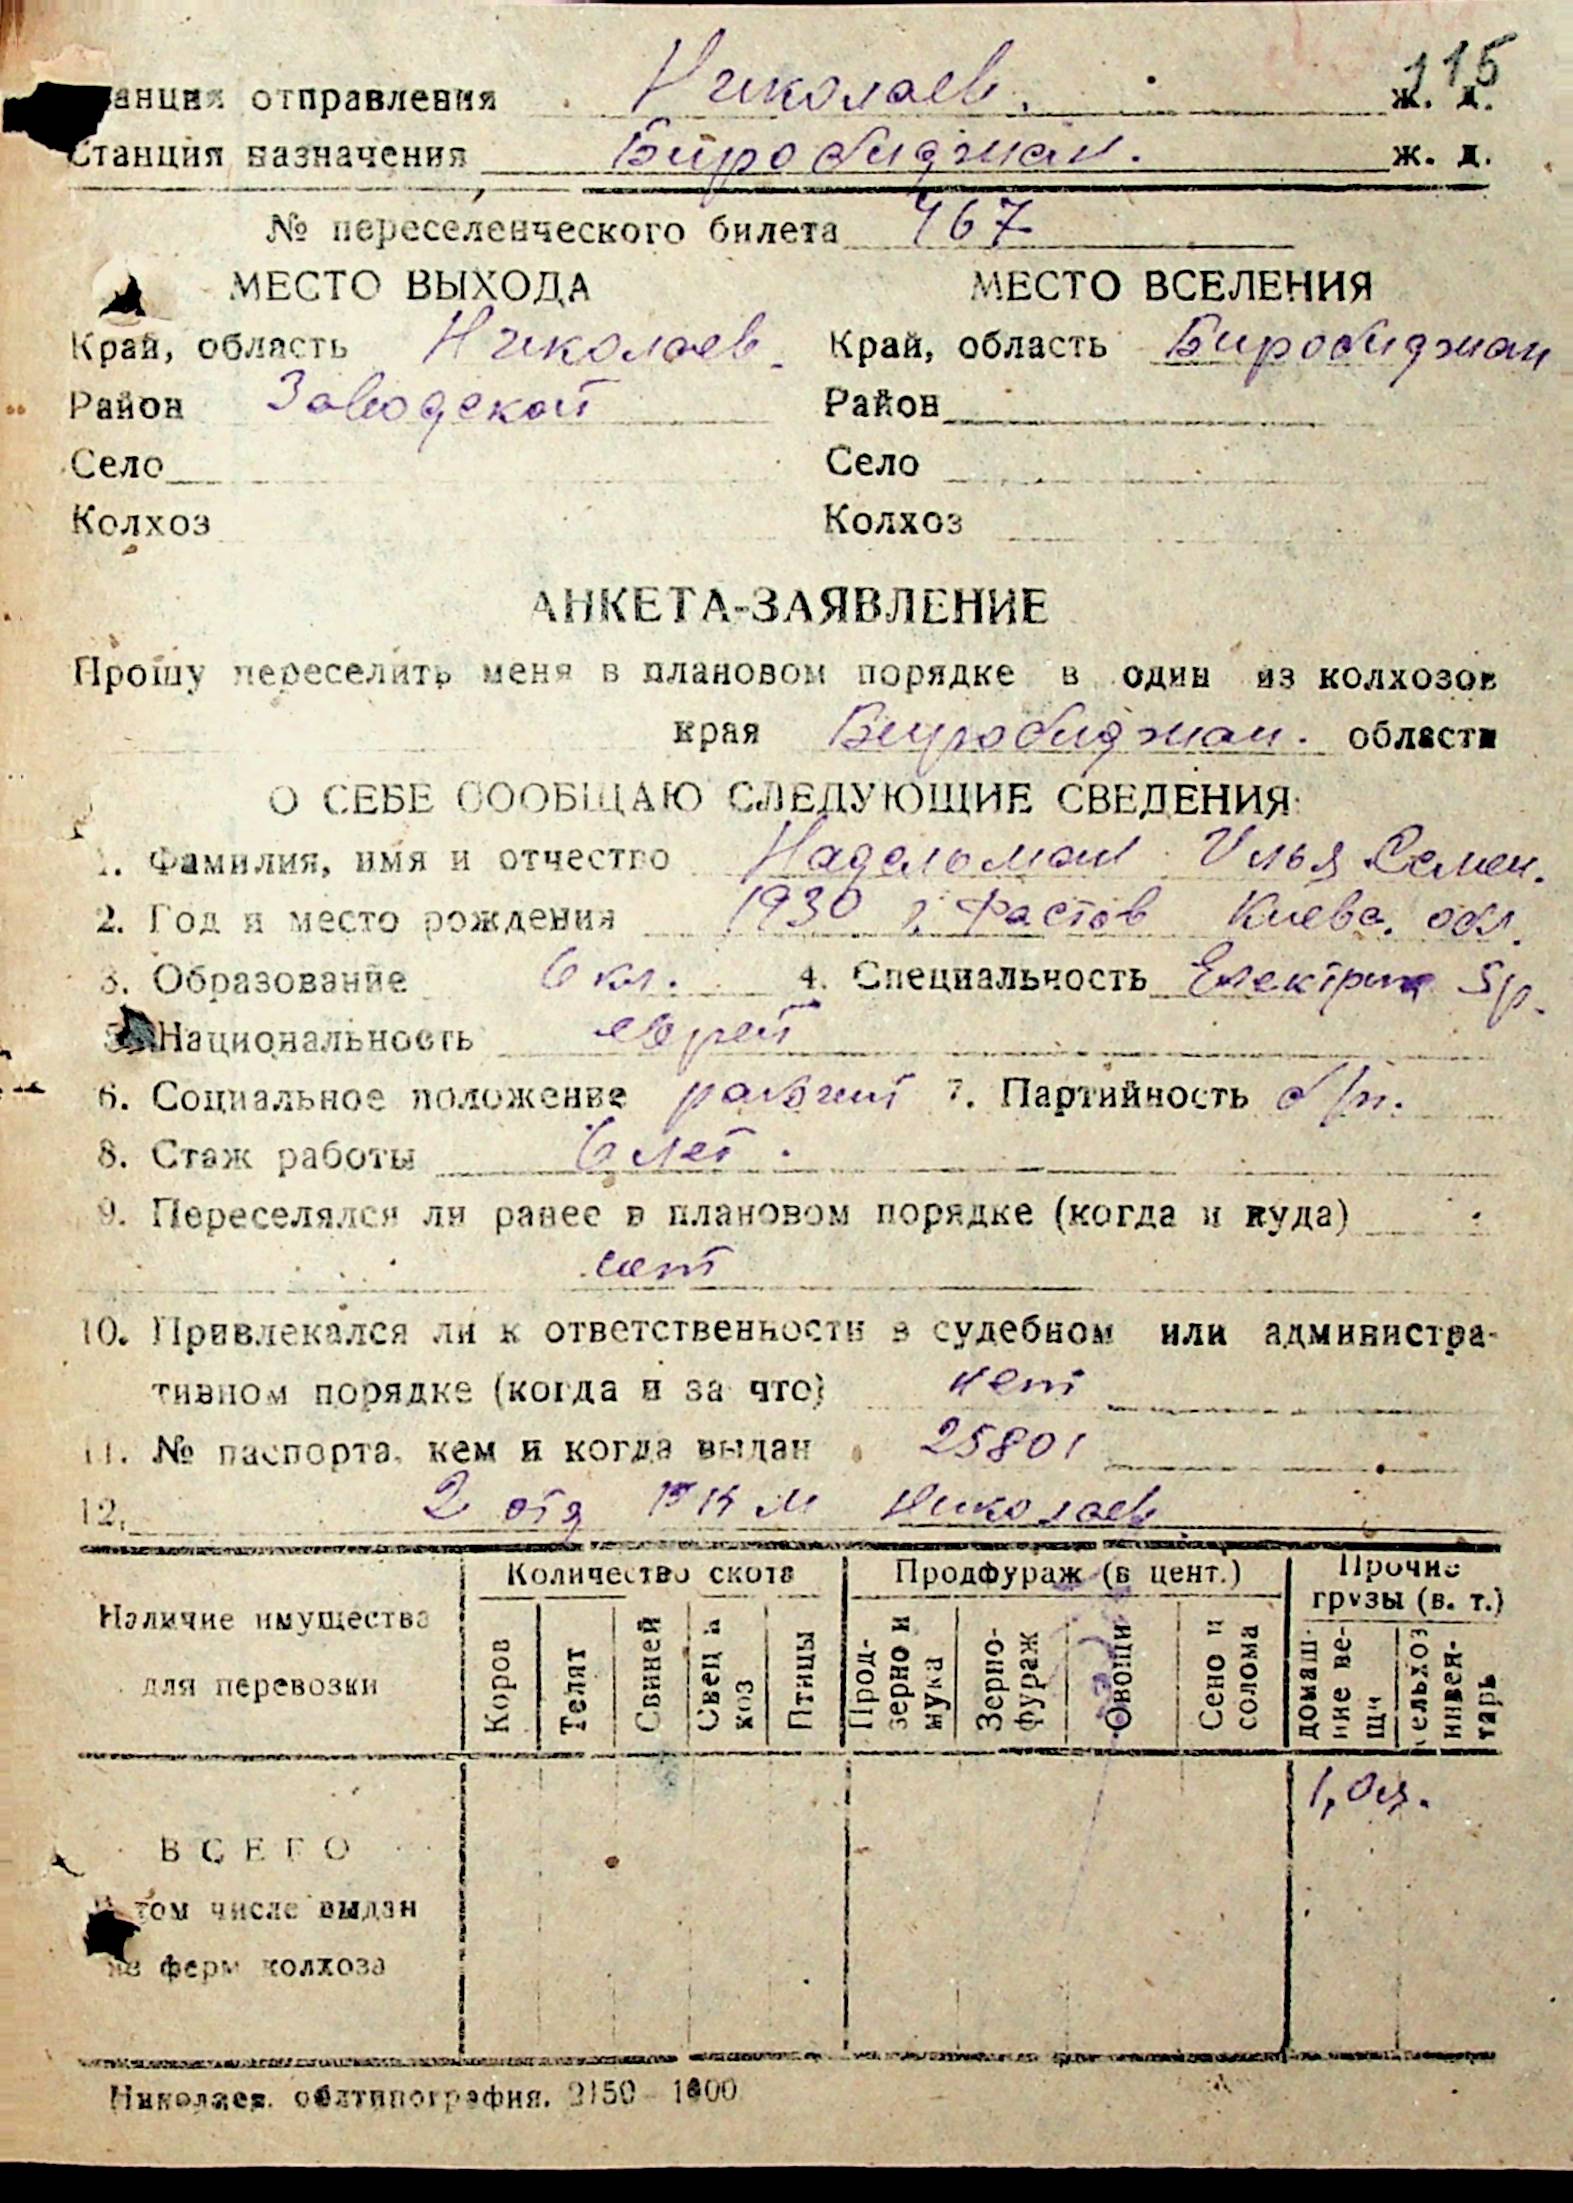 115
Станция отправления Николаев. ж. д.
Станция назначения Биробиджан. ж. д.
№ переселенческого билета 467
МЕСТО ВЫХОДА МЕСТО ВСЕЛЕНИЯ
Край, область Николаев. Край, область Биробиджан
Район Заводской Район
Село Село
Колхоз Колхоз
АНКЕТА-ЗАЯВЛЕНИЕ
Прошу переселить меня в плановом порядке в один из колхозов
края Биробиджан. области
О СЕБЕ СООБЩАЮ СЛЕДУЮЩИЕ СВЕДЕНИЯ:
1. Фамилия, имя и отчество Надельман Илья Семен.
2. Год и место рождения 1930 г. Фастов Киевс. обл.
3. Образование 6 кл. 4. Специальность Електрик 5р.
5. Национальность еврей
6. Социальное положение рабочий 7. Партийность б/п.
8. Стаж работы 6 лет.
9. Переселялся ли ранее в плановом порядке (когда и куда)
нет
10. Привлекался ли к ответственности в судебном или администра-
тивном порядке (когда и за что) нет
11. № паспорта, кем и когда выдан 25801
12. 2 отд РКМ Николаев
Наличие имущества
для перевозки
Количество скота
Продфураж (в цент.)
Прочие
грузы (в. т.)
Коров
Телят
Свиней
Свец и
коз
Птицы
Прод-
зерно и
мука
Зерно-
фураж
Овощи
Сено и
солома
домаш-
ние ве-
щи
сельхоз
инвен-
тарь
ВСЕГО
В том числе выдан
из ферм колхоза
Николаев. облтипография. 2150—1000